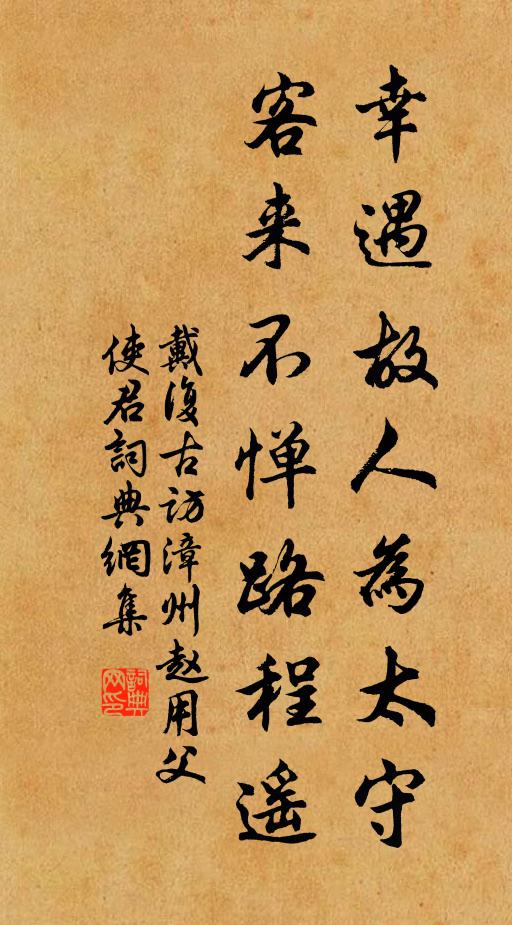 幸遇故人為太守
客来不惮路程遥
戴復古访漳州赵用父
使君詞典網集
詞典网印